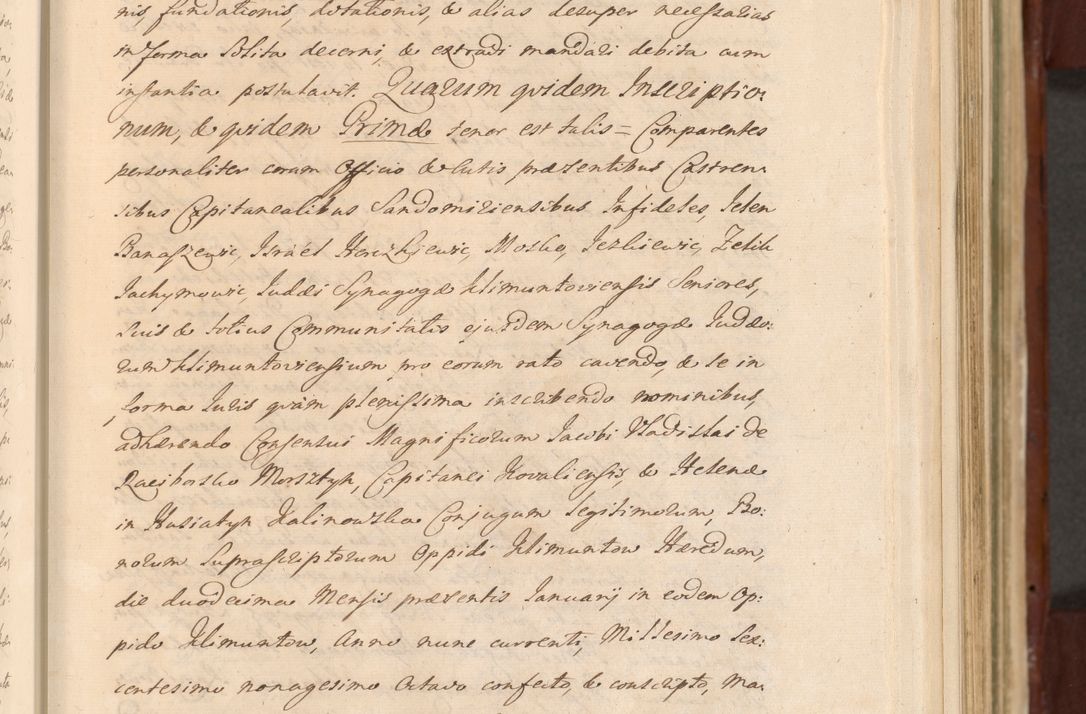 nis, fundationis, dotationis, & alias desuper necessarias
in forma solita decerni, & extradi mandari debita cum
instantia postulavit. Quarum quidem Inscriptio:
num, & quidem Primæ tenor est talis = Comparentes
personaliter coram Officio & Actis præsentibus Castren:
sibus Capitanealibus Sandomiriensibus Infideles, Jelen
Banaszewic, Israel Herczkiewic, Mosko, Jezkiewic, Zelik
Jachymowic, Judæi Synagogæ Klimuntoviensis Seniores,
suis & totius Communitatis ejusdem Synagogæ Judæo:
rum Klimuntoviensium, pro eorum rato cavendo, & se in
forma Juris quàm plenissima inscribendo nominibus,
adhærendo Consensui Magnificorum Jacobi Vladislai de
Raciborsko Morsztyn, Capitanei Kovaliensis, & Helenæ
in Husiatyn Kalinowska Conjugum legitimorum, Bo:
norum suprascriptorum Oppidi Klimuntow Hæredum,
die duodecima Mensis præsentis Januarij in eodem Op:
pido Klimuntow, Anno nunc currenti, Millesimo Sex:
centesimo nonagesimo Octavo confecto, & conscripto, Ma: